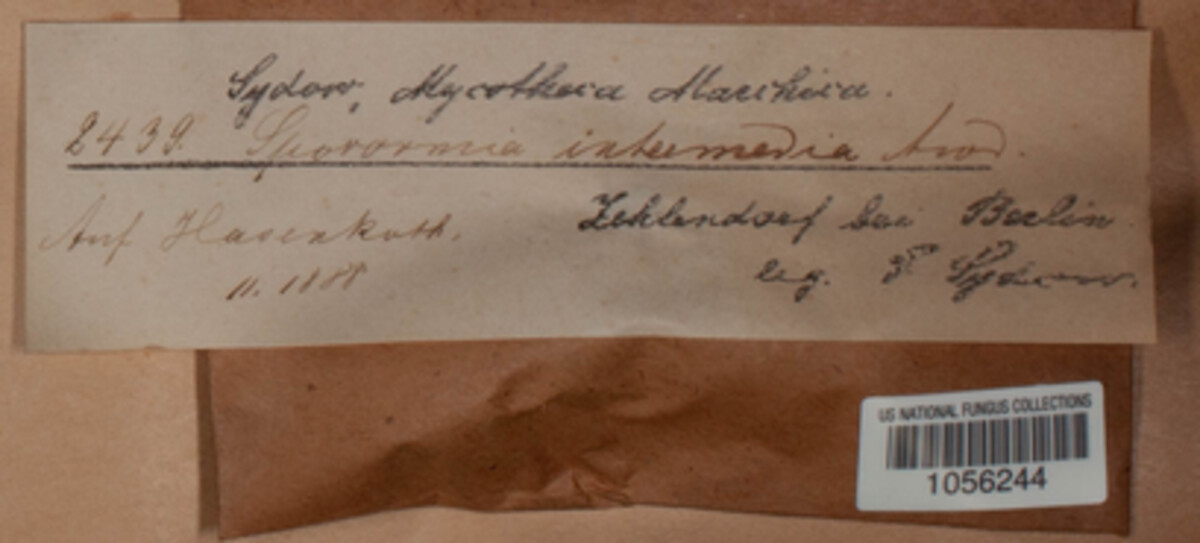 Sydow, Mycotheca Marchica.
2439. Sporormia intermedia Awd.
Auf Hasenkoth.
11. 1888
Zehlendorf bei Berlin
leg. P. Sydow.
US NATIONAL FUNGUS COLLECTIONS
1056244